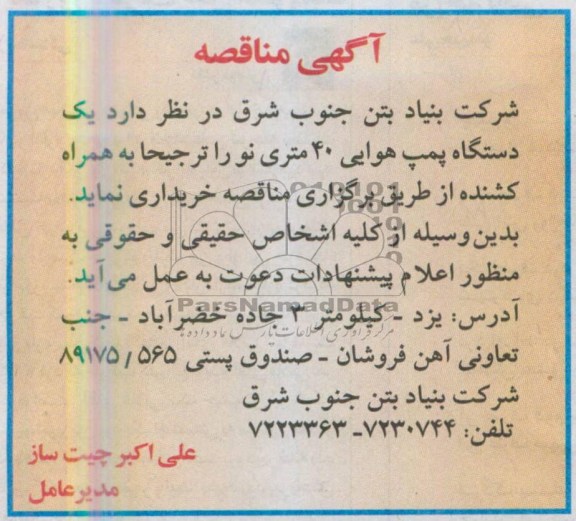 آگهی مناقصه
شرکت بنیاد بتن جنوب شرق در نظر دارد یک
دستگاه پمپ هوایی ۴۰ متری نو را ترجیحا به همراه
کشنده از طریق برگزاری مناقصه خریداری نماید.
بدین وسیله از کلیه اشخاص حقیقی و حقوقی به
منظور اعلام پیشنهادات دعوت به عمل می آید.
ParsNamadData
آدرس: یزد - کیلومتر ۳ جاده خضرآباد - جنب
تعاونی آهن فروشان - صندوق پستی ۵۶۵ / ۸۹۱۷۵
شرکت بنیاد بتن جنوب شرق
تلفن: ۷۲۳۰۷۴۴- ۷۲۲۳۳۶۳
علی اکبر چیت ساز
مدیرعامل